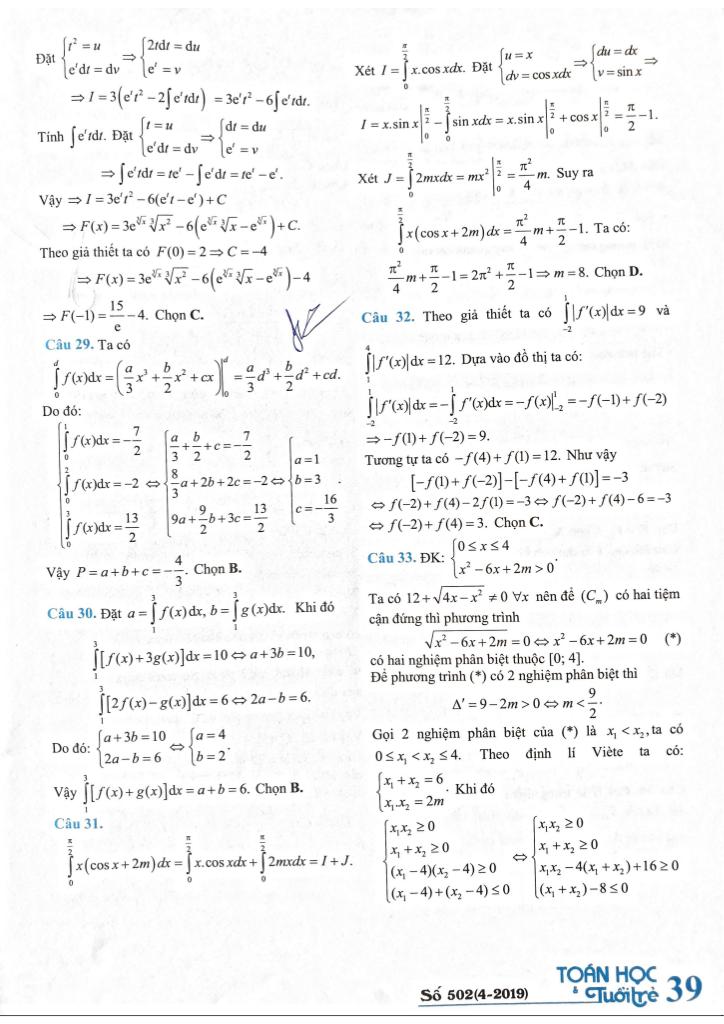 Đặt {t² = u; eᵗdt = dv ⇒ {2tdt = du; eᵗ = v
⇒ I = 3(eᵗt² − 2∫eᵗtdt) = 3eᵗt² − 6∫eᵗtdt.
Tính ∫eᵗtdt. Đặt {t = u; eᵗdt = dv ⇒ {dt = du; eᵗ = v
⇒ ∫eᵗtdt = teᵗ − ∫eᵗdt = teᵗ − eᵗ.
Vậy ⇒ I = 3eᵗt² − 6(eᵗt − eᵗ) + C
⇒ F(x) = 3e^{∛x} ∛(x²) − 6(e^{∛x} ∛x − e^{∛x}) + C.
Theo giả thiết ta có F(0) = 2 ⇒ C = −4
⇒ F(x) = 3e^{∛x} ∛(x²) − 6(e^{∛x} ∛x − e^{∛x}) − 4
⇒ F(−1) = 15/e − 4. Chọn C.
Câu 29. Ta có
∫₀ᵈ f(x)dx = (a/3 x³ + b/2 x² + cx)|₀ᵈ = a/3 d³ + b/2 d² + cd.
Do đó:
{∫₀¹ f(x)dx = −7/2; ∫₀² f(x)dx = −2; ∫₀³ f(x)dx = 13/2 ⇔ {a/3 + b/2 + c = −7/2; 8/3 a + 2b + 2c = −2; 9a + 9/2 b + 3c = 13/2 ⇔ {a = 1; b = 3; c = −16/3.
Vậy P = a + b + c = −4/3. Chọn B.
Câu 30. Đặt a = ∫₁³ f(x)dx, b = ∫₁³ g(x)dx. Khi đó
∫₁³ [f(x) + 3g(x)]dx = 10 ⇔ a + 3b = 10,
∫₁³ [2f(x) − g(x)]dx = 6 ⇔ 2a − b = 6.
Do đó: {a + 3b = 10; 2a − b = 6 ⇔ {a = 4; b = 2.
Vậy ∫₁³ [f(x) + g(x)]dx = a + b = 6. Chọn B.
Câu 31.
∫₀^{π/2} x(cos x + 2m)dx = ∫₀^{π/2} x.cos xdx + ∫₀^{π/2} 2mxdx = I + J.
Xét I = ∫₀^{π/2} x.cos xdx. Đặt {u = x; dv = cos xdx ⇒ {du = dx; v = sin x ⇒
I = x.sin x|₀^{π/2} − ∫₀^{π/2} sin xdx = x.sin x|₀^{π/2} + cos x|₀^{π/2} = π/2 − 1.
Xét J = ∫₀^{π/2} 2mxdx = mx²|₀^{π/2} = π²/4 m. Suy ra
∫₀^{π/2} x(cos x + 2m)dx = π²/4 m + π/2 − 1. Ta có:
π²/4 m + π/2 − 1 = 2π² + π/2 − 1 ⇒ m = 8. Chọn D.
Câu 32. Theo giả thiết ta có ∫₋₂¹ |f′(x)|dx = 9 và
∫₁⁴ |f′(x)|dx = 12. Dựa vào đồ thị ta có:
∫₋₂¹ |f′(x)|dx = −∫₋₂¹ f′(x)dx = −f(x)|₋₂¹ = −f(−1) + f(−2)
⇒ −f(1) + f(−2) = 9.
Tương tự ta có −f(4) + f(1) = 12. Như vậy
[−f(1) + f(−2)] − [−f(4) + f(1)] = −3
⇔ f(−2) + f(4) − 2f(1) = −3 ⇔ f(−2) + f(4) − 6 = −3
⇔ f(−2) + f(4) = 3. Chọn C.
Câu 33. ĐK: {0 ≤ x ≤ 4; x² − 6x + 2m > 0.
Ta có 12 + √(4x − x²) ≠ 0 ∀x nên để (Cₘ) có hai tiệm
cận đứng thì phương trình
√(x² − 6x + 2m) = 0 ⇔ x² − 6x + 2m = 0 (*)
có hai nghiệm phân biệt thuộc [0; 4].
Để phương trình (*) có 2 nghiệm phân biệt thì
Δ′ = 9 − 2m > 0 ⇔ m < 9/2.
Gọi 2 nghiệm phân biệt của (*) là x₁ < x₂, ta có
0 ≤ x₁ < x₂ ≤ 4. Theo định lí Viète ta có:
{x₁ + x₂ = 6; x₁.x₂ = 2m. Khi đó
{x₁x₂ ≥ 0; x₁ + x₂ ≥ 0; (x₁ − 4)(x₂ − 4) ≥ 0; (x₁ − 4) + (x₂ − 4) ≤ 0 ⇔ {x₁x₂ ≥ 0; x₁ + x₂ ≥ 0; x₁x₂ − 4(x₁ + x₂) + 16 ≥ 0; (x₁ + x₂) − 8 ≤ 0
Số 502(4-2019)
TOÁN HỌC
& Tuổi trẻ 39